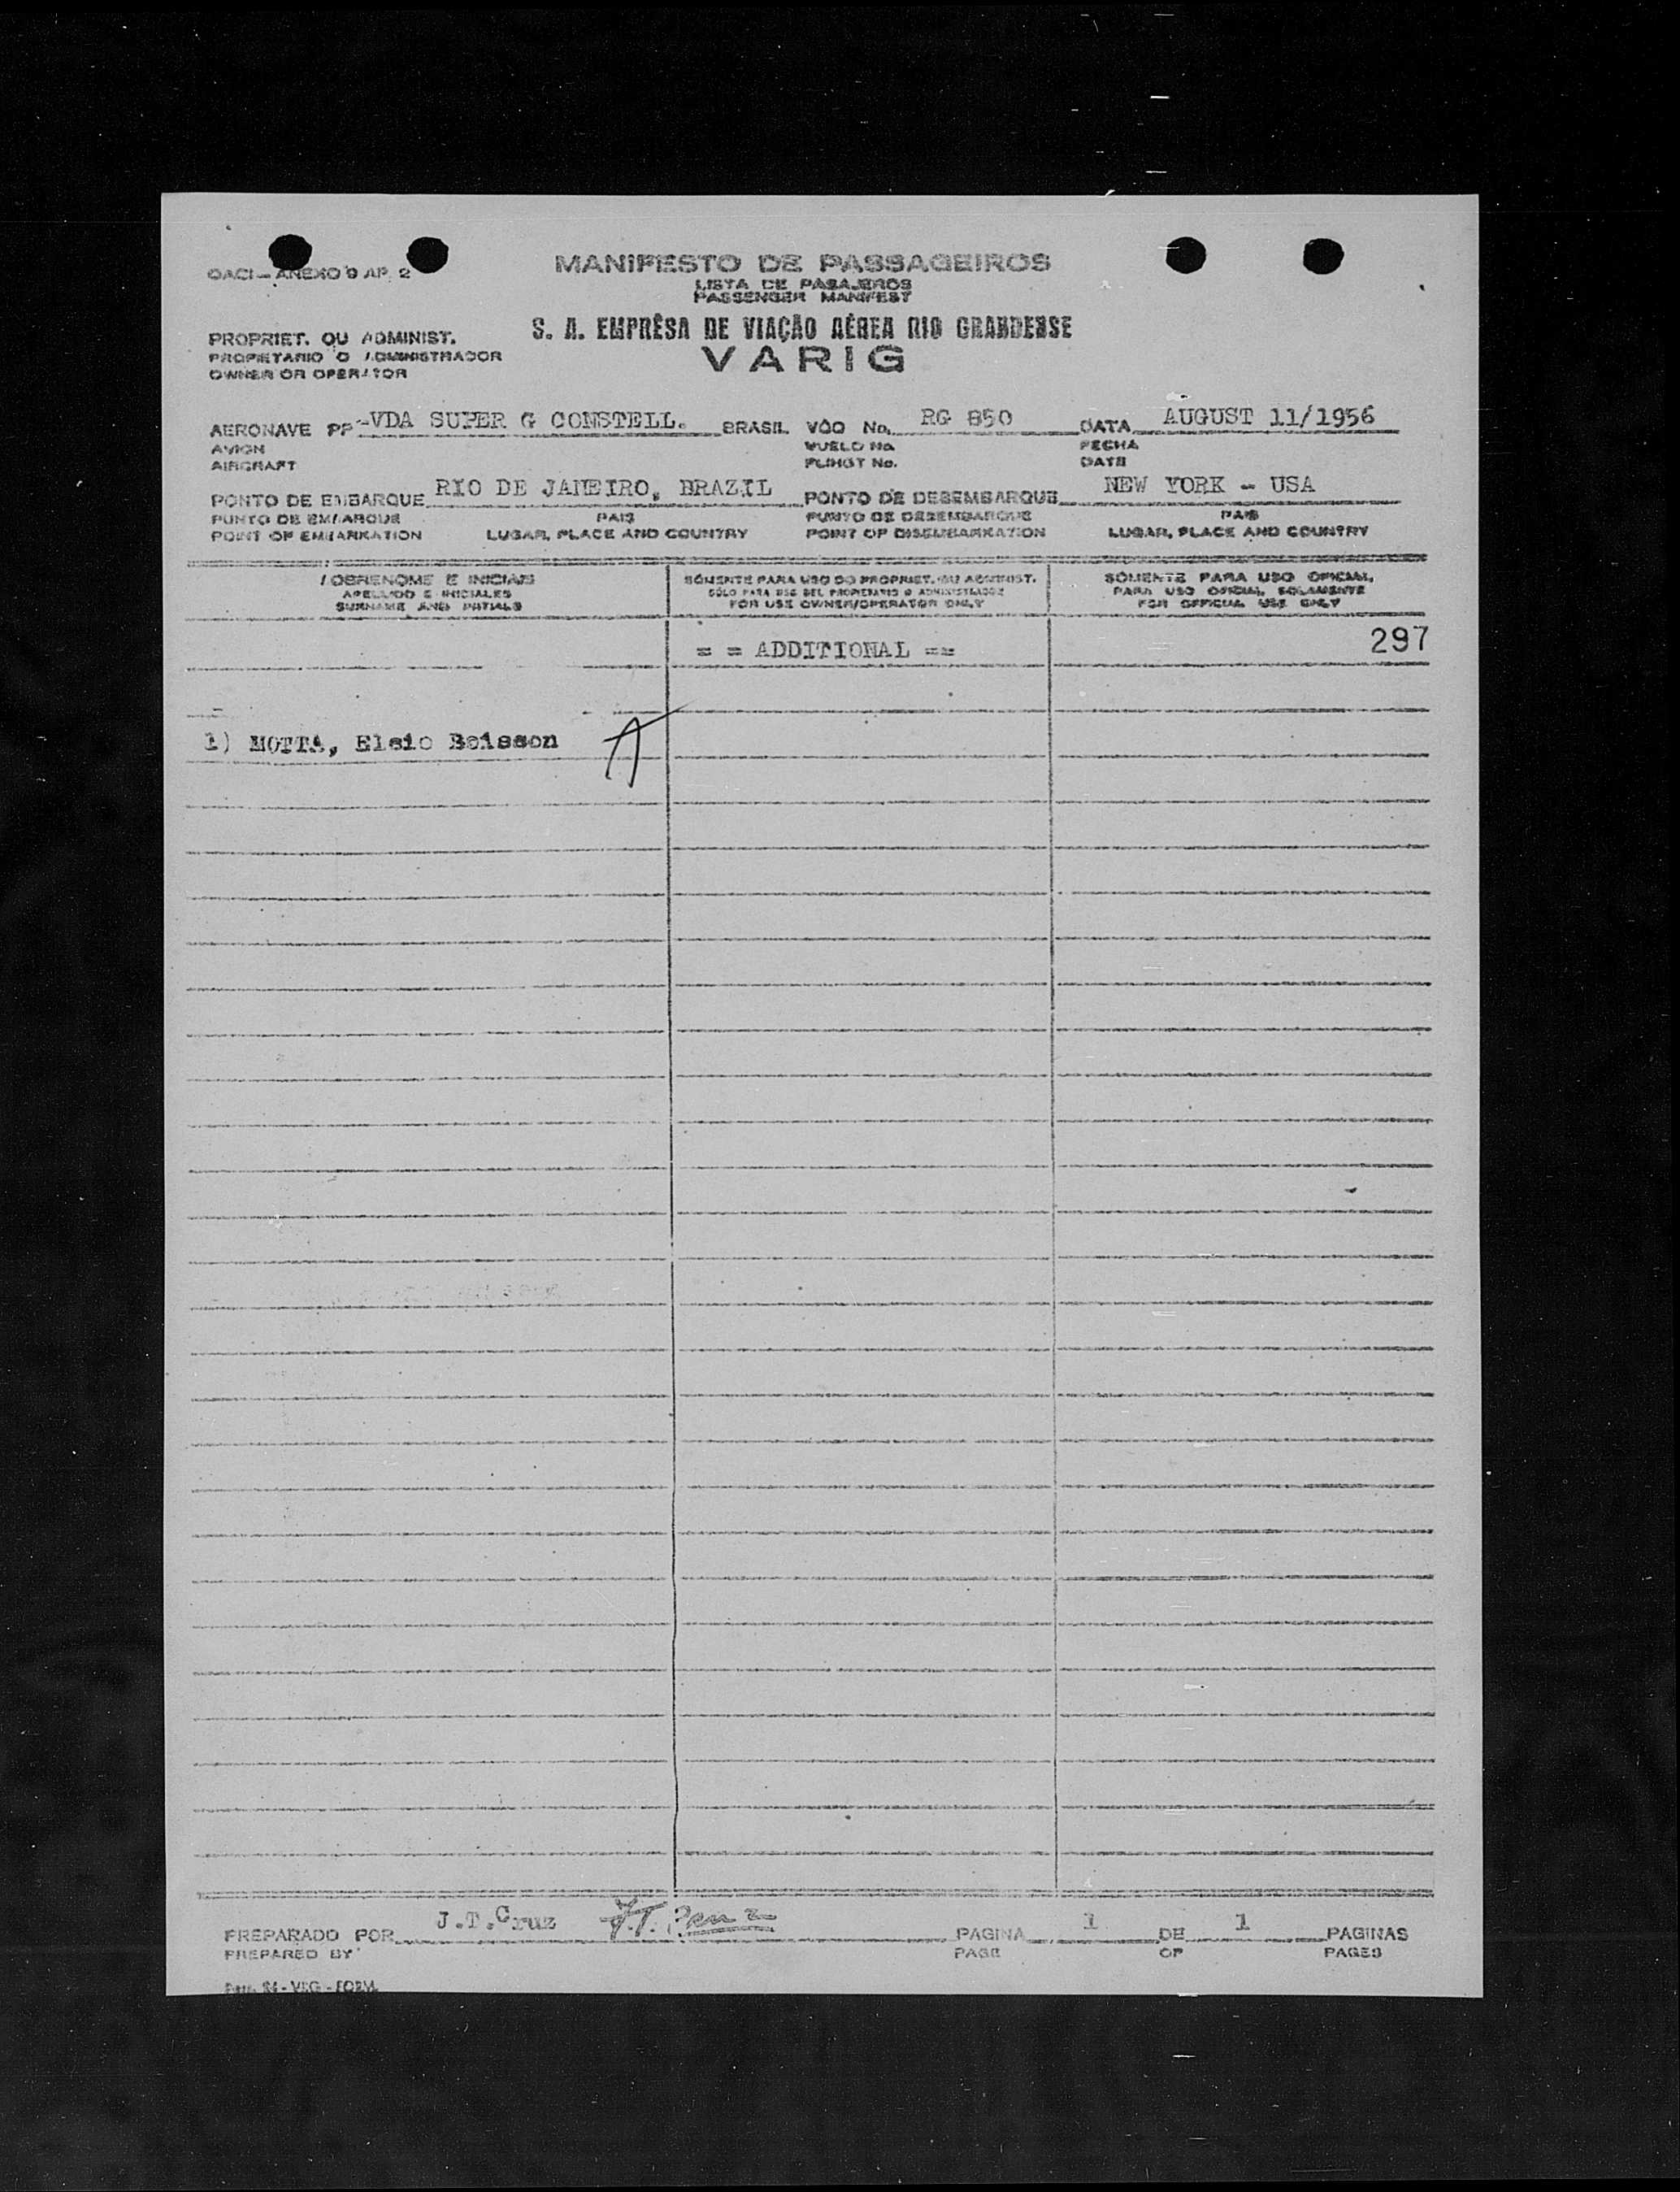 OACI - ANEXO 9 AP. 2
MANIFESTO DE PASSAGEIROS
LISTA DE PASAJEROS
PASSENGER MANIFEST
PROPRIET. OU ADMINIST.
S. A. EMPRÊSA DE VIAÇÃO AÉREA RIO GRANDENSE
PROPIETARIO O ADMINISTRADOR
VARIG
OWNER OR OPERATOR
AERONAVE PP -VDA SUPER G CONSTELL. BRASIL VÔO No. RG 850 DATA AUGUST 11/1956
AVION VUELO No. FECHA
AIRCRAFT FLIHGT No. DATE
PONTO DE EMBARQUE RIO DE JANEIRO, BRAZIL PONTO DE DESEMBARQUE NEW YORK - USA
PUNTO DE EMBARQUE PAIS PUNTO DE DESEMBARQUE PAIS
POINT OF EMBARKATION LUGAR, PLACE AND COUNTRY POINT OF DISEMBARKATION LUGAR, PLACE AND COUNTRY
SOBRENOME E INICIAIS SÓMENTE PARA USO DO PROPRIET. OU ADMINIST. SÓMENTE PARA USO OFICIAL
APELLIDO E INICIALES SÓLO PARA USO DEL PROPIETARIO O ADMINISTRADOR PARA USO OFICIAL SOLAMENTE
SURNAME AND INITIALS FOR USE OWNER/OPERATOR ONLY FOR OFFICIAL USE ONLY
= = ADDITIONAL == 297
1) MOTTA, Elsio Boisson
PREPARADO POR J.T.Cruz PAGINA 1 DE 1 PAGINAS
PREPARED BY PAGE OF PAGES